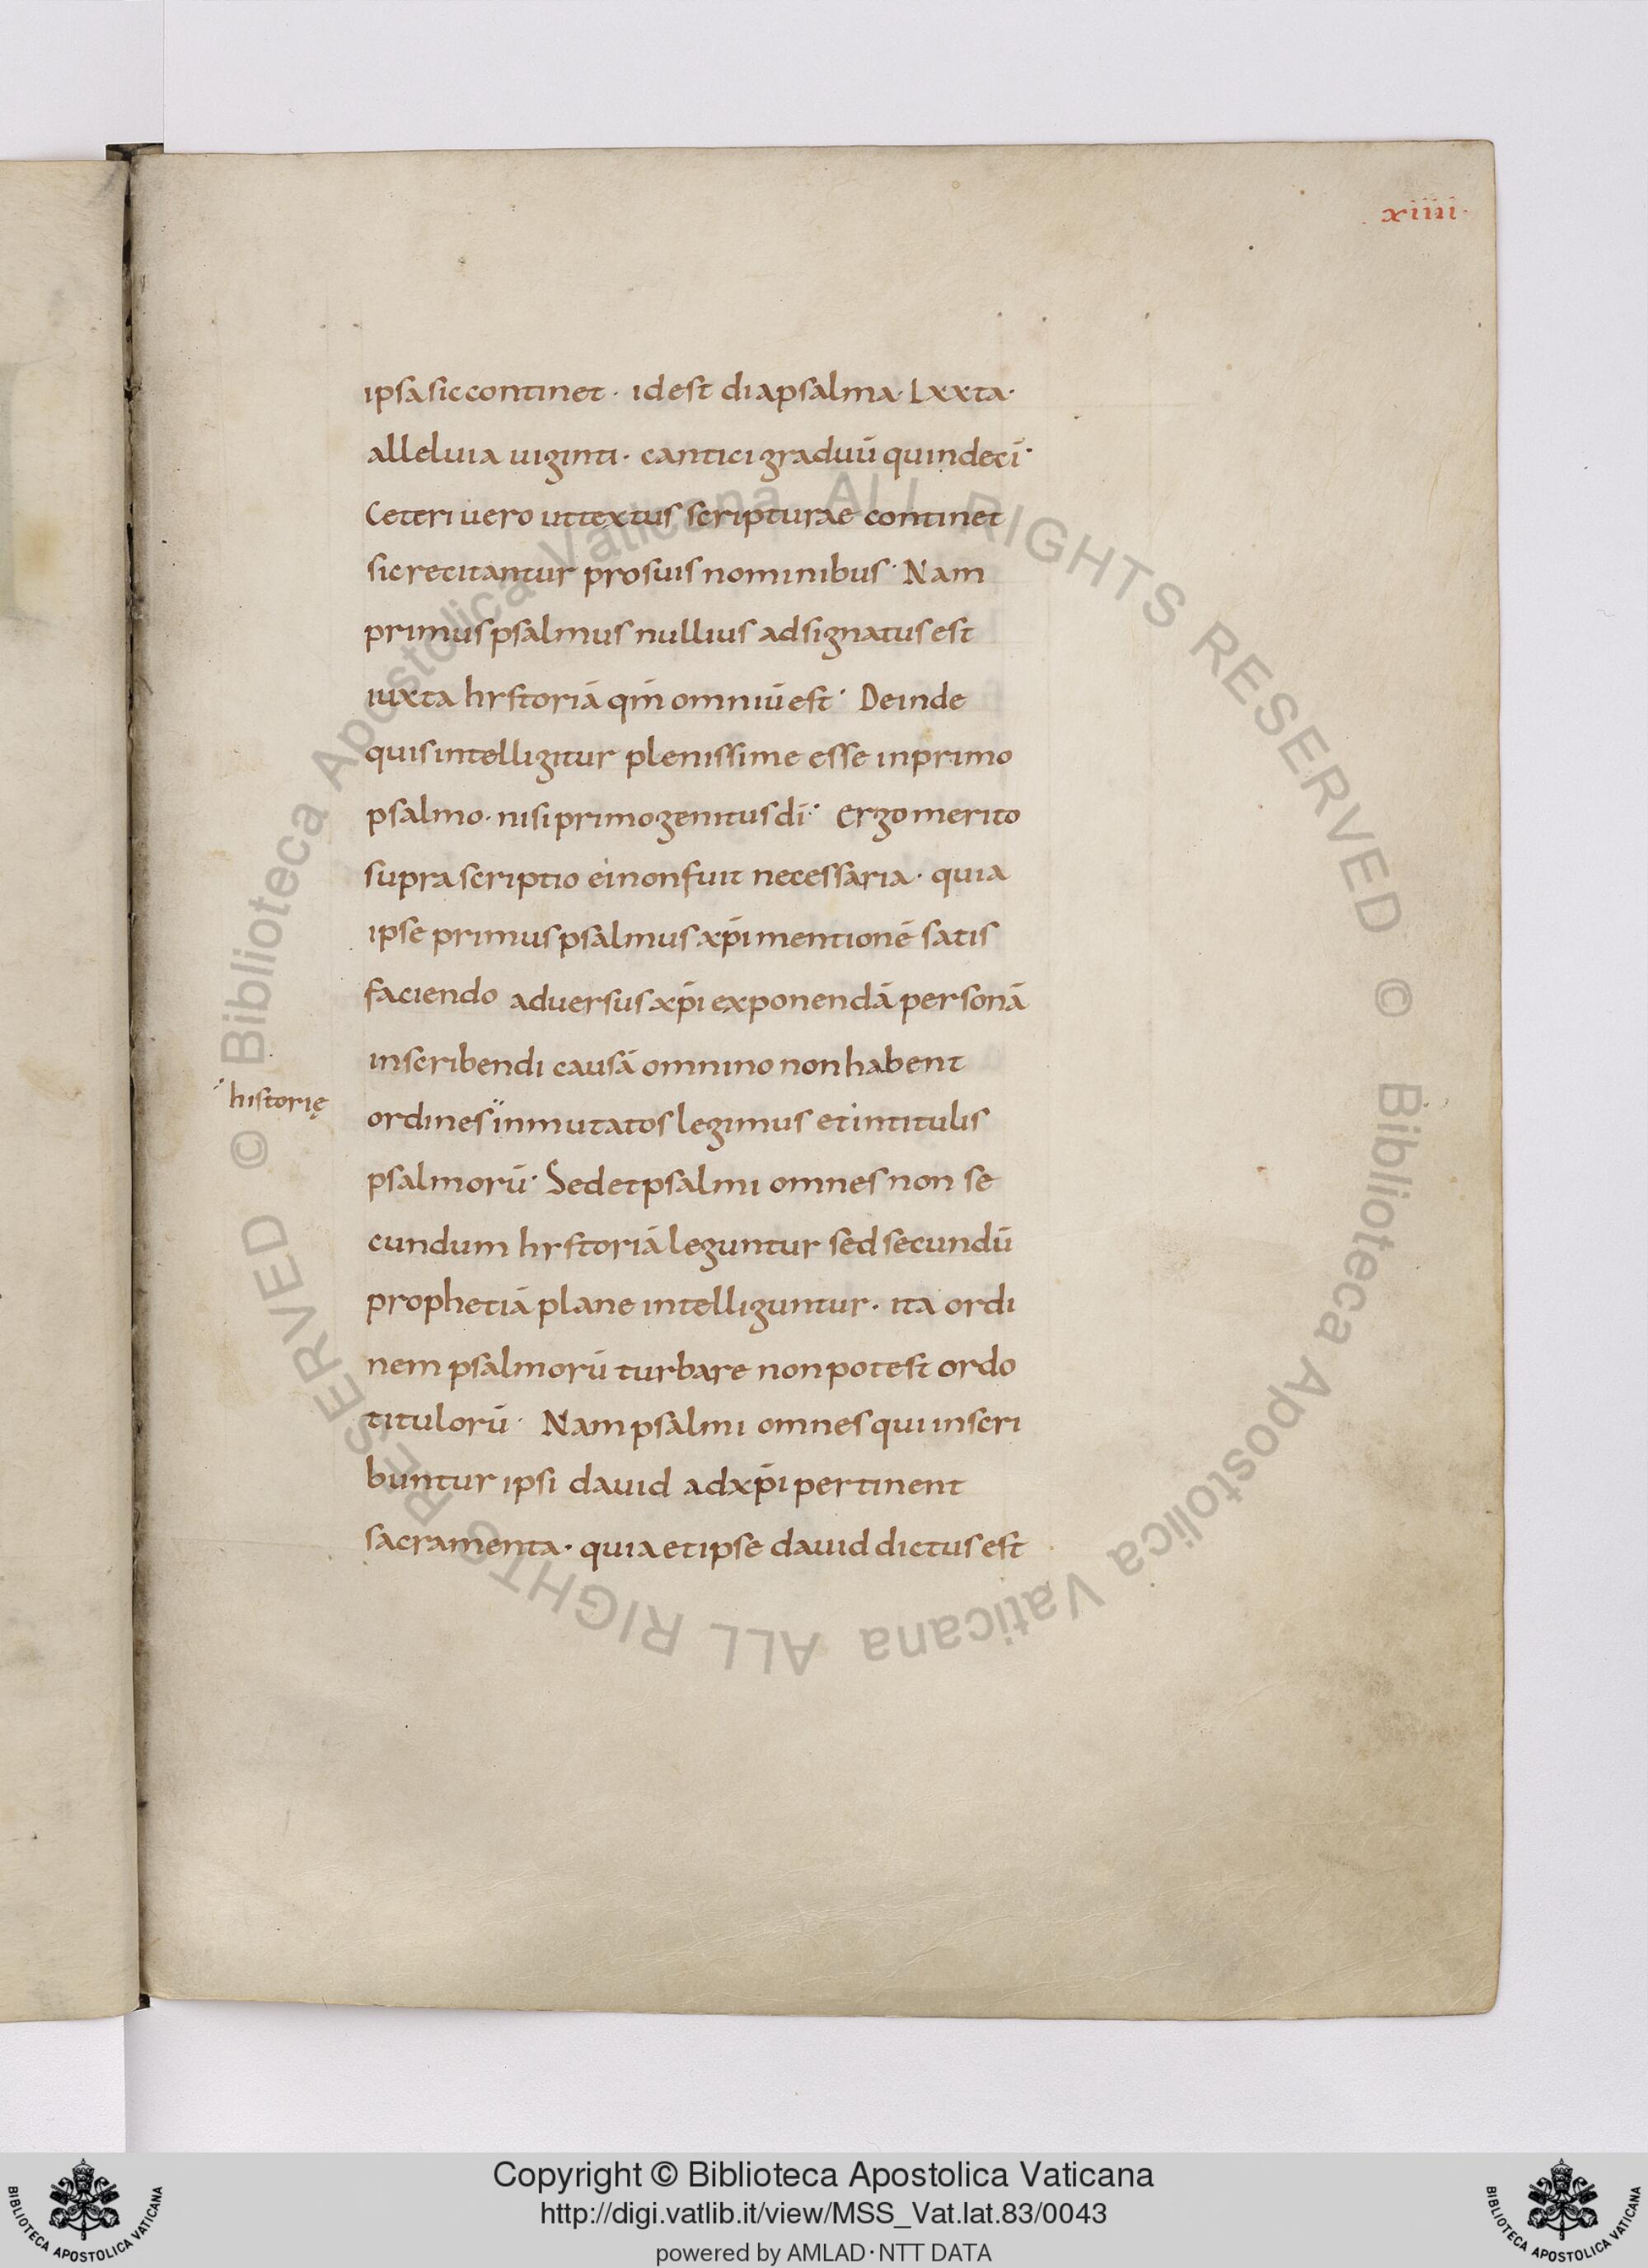 xiiii·
ipsa sic continet · id est diapsalma · Lxxta·
alleluia uiginti · cantici graduũ quindecī·
Ceteri uero ut textus scripturae continet
sic recitantur pro suis nominibus · Nam
primus psalmus nullius adsignatus est
iuxta hystoriā qm̄ omniū est · Deinde
quis intelligitur plenissime esse in primo
psalmo · nisi primogenitus dī · Ergo merito
supra scriptio ei non fuit necessaria · quia
ipse primus psalmus xp̄i mentionē satis
faciendo aduersus xp̄i exponendā personā
inscribendi causā omnino non habent
historię
ordines inmutatos legimus et in titulis
psalmorū · Sed et psalmi omnes non se
cundum hystoriā leguntur sed secundū
prophetiā plane intelliguntur · ita ordi
nem psalmorū turbare non potest ordo
titulorū · Nam psalmi omnes qui inscri
buntur ipsi dauid ad xp̄i pertinent
sacramenta · quia et ipse dauid dictus est
© Biblioteca Apostolica Vaticana ALL RIGHTS RESERVED © Biblioteca Apostolica Vaticana ALL RIGHTS RESERVED
Copyright © Biblioteca Apostolica Vaticana
http://digi.vatlib.it/view/MSS_Vat.lat.83/0043
powered by AMLAD·NTT DATA
BIBLIOTECA APOSTOLICA VATICANA
BIBLIOTECA APOSTOLICA VATICANA